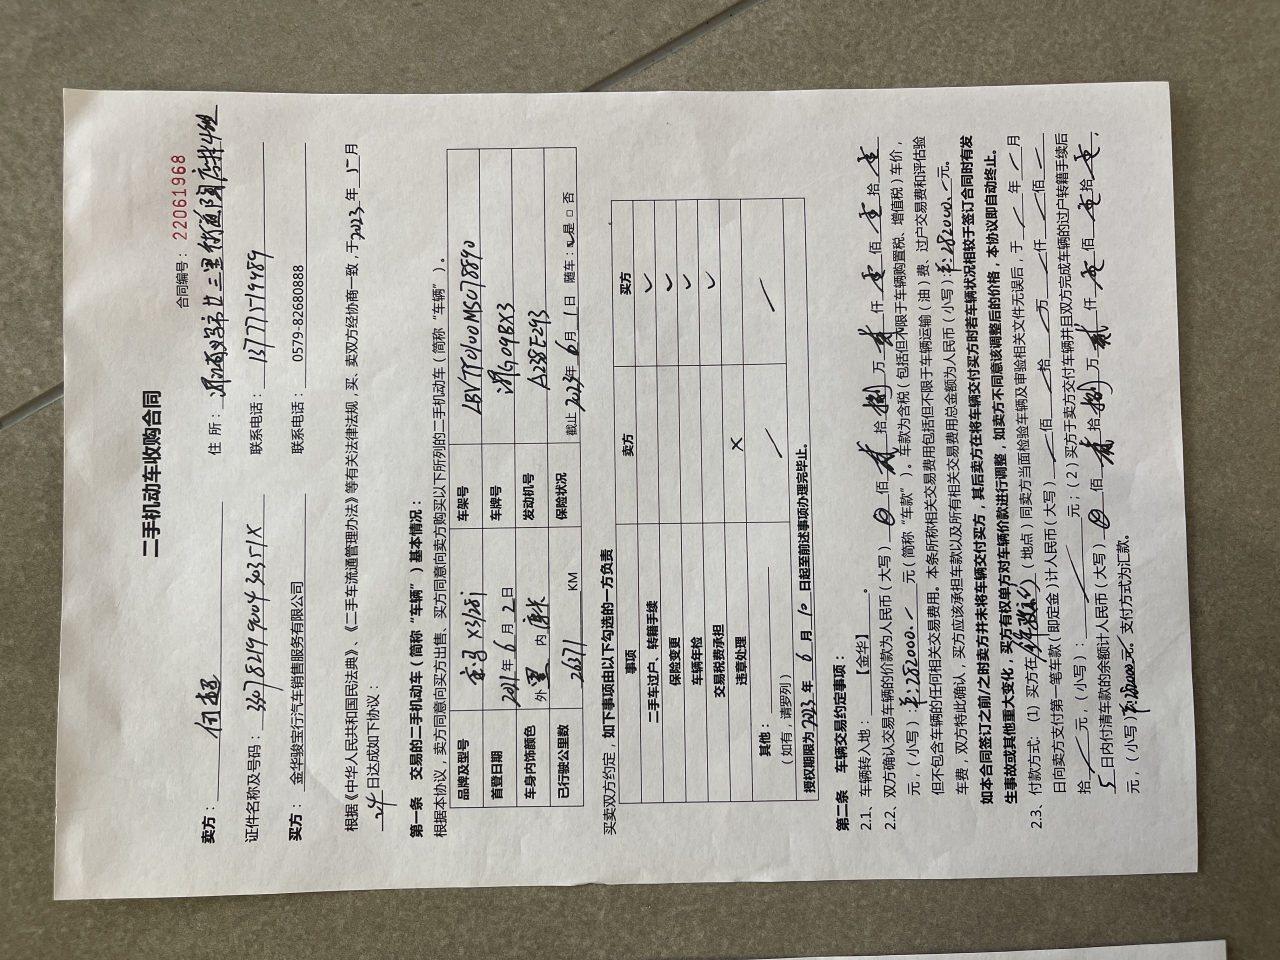 二手机动车收购合同
合同编号：22061968
卖方：何超 住 所：浙江省义乌市廿三里街道陶店村4组
证件名称及号码：33078219900430351X 联系电话：13777579489
买方：金华骏宝行汽车销售服务有限公司 联系电话：0579-82680888
根据《中华人民共和国民法典》、《二手车流通管理办法》等有关法律法规，买、卖双方经协商一致，于2023年 5月
24日达成如下协议：
第一条 交易的二手机动车（简称“车辆”）基本情况：
根据本协议，卖方同意向买方出售、买方同意向卖方购买以下所列的二手机动车（简称“车辆”）。
品牌及型号 宝马X328i 车架号
首登日期 2021年6月2日 车牌号 浙G09BX3
车身内饰颜色 外 黑 内 发动机号 A238E293
已行驶公里数 26371 KM 保险状况 截止2023年6月1日 随车：☑是 □否
买卖双方约定，如下事项由以下勾选的一方负责
事项 卖方 买方
二手车过户、转籍手续 ✓
保险变更 ✓
车辆年检 ✓
交易税费承担 ✓
违章处理 ×
其他：
（如有，请罗列）
授权期限为2023年 6月 10日起至前述事项办理完毕止。
第二条 车辆交易约定事项：
2.1、车辆转入地：【金华】。
2.2、双方确认交易车辆的价款为人民币（大写）⊗佰贰拾捌万贰仟零佰零拾零
元，（小写）：¥:282000.-元（简称“车款”）。车款为含税（包括但不限于车辆购置税、增值税）车价，
但不包含车辆的任何相关交易费用。本条所称相关交易费用包括但不限于车辆运输（油）费、过户交易费和评估验
车费，双方特此确认，买方应该承担车款以及所有相关交易费用总金额为人民币（小写）¥:282000.-元。
如本合同签订之前/之时卖方并未将车辆交付买方，其后卖方在将车辆交付买方时若车辆状况相较于签订合同时有发
生事故或其他重大变化，买方有权单方对车辆价款进行调整，如卖方不同意该调整后的价格，本协议即自动终止。
2.3、付款方式：（1）买方在（地点）同卖方当面检验车辆及审验相关文件无误后，于 年 月
日向卖方支付第一笔车款（即定金）计人民币（大写） 佰 拾 万 仟 佰
拾 元，（小写）： 元；（2）买方于卖方交付车辆并且双方完成车辆的过户转籍手续后
5日内付清车款的余额计人民币（大写）⊗佰贰拾捌万贰仟零佰零拾零
元，（小写）¥282000元，支付方式为汇款。